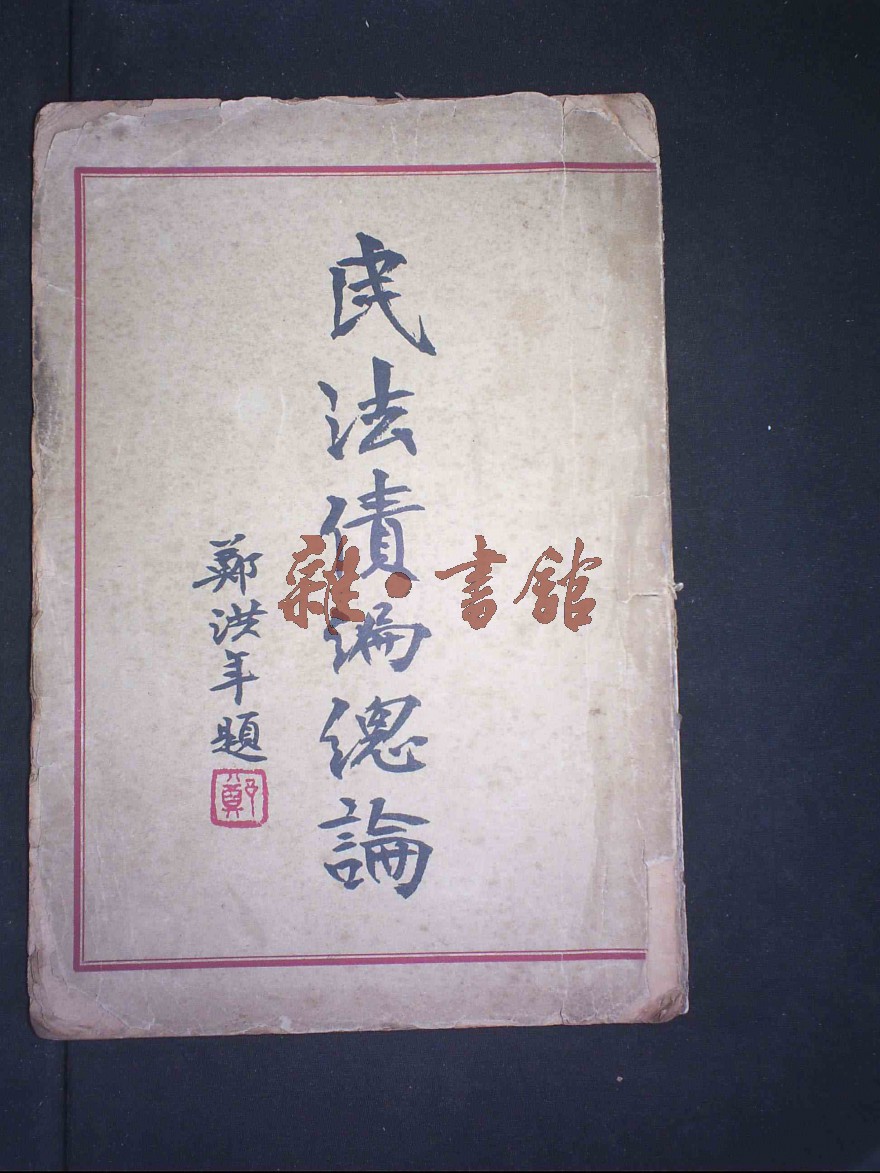 民法債編總論
鄭洪年題
鄭
雜·書館